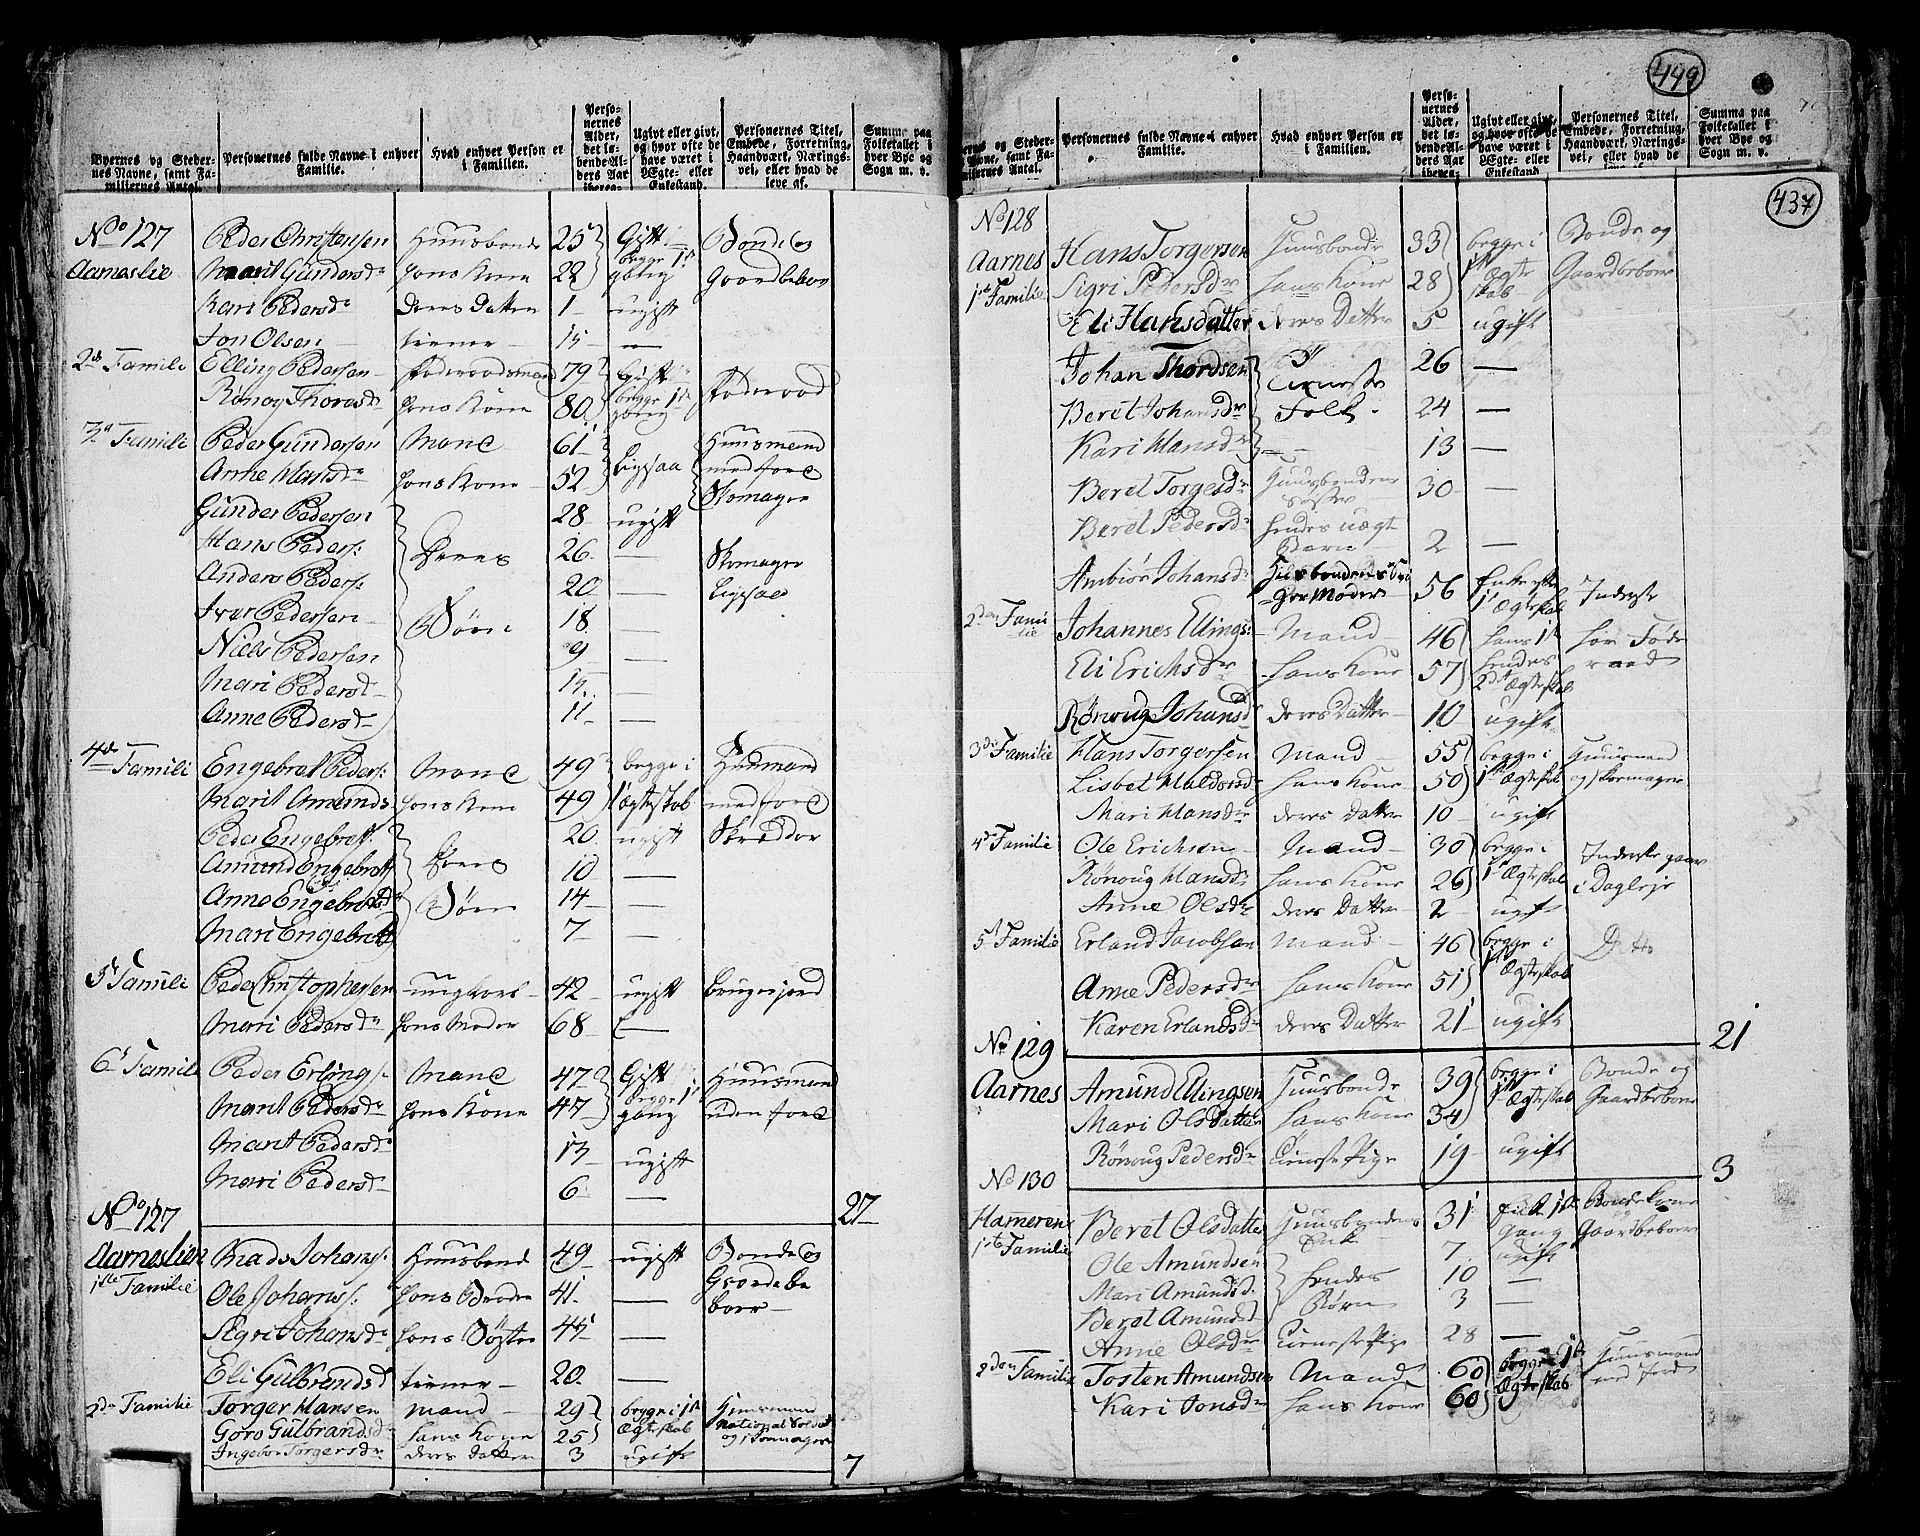 Byernes og Steder-
nes Navne, samt Fa-
miliernes Antal.
Personernes fulde Navne i enhver
Familie.
Hvad enhver Person er
i Familien.
Perso-
nernes
Alder,
det lø-
bende Al-
ders Aar
iberegnet
Ugivt eller givt,
og hvor ofte de
have været i
Ægte- eller
Enkestand.
Personernes Titel,
Embede, Forretning,
Haandværk, Nærings-
vei, eller hvad de
leve af.
Summa paa
Folketallet i
hver Bye og
Sogn m. v.
No 127 Peder Christensen Huusbonde 25 Gift Bonde og
Aarneslie Marit Gundersdr hans Kone 22 begge 1ste gang Gaardbeboer
Kari Pedersdr deres Datter 1 ugift
Jon Olsen tiener 15 —
2de Famili Elling Pedersen Føderaadsmand 79 Gift Føderaad
Rönog Thoresdr hans Kone 80 begge 1ste gang
3die Famili Peder Gundersen Mand 61 Huusmand
Anne Hansdr hans Kone 52 Ligesaa med Jord
Gunder Pedersen 28 ugift Skomager
Hans Peders: 26 — Skomager
Anders Peders: Deres 20 — Ligesaa
Iver Pedersen Børn 18 —
Niels Pedersen 9 —
Mari Pedersd 15 —
Anne Pedersd 11 —
4de Famili Engebret Peders: Mand 49 begge i Huusmand
Marit Amunds. hans Kone 49 1 Ægteskab med Jord
Peder Engebrets: 20 ugift Skredder
Amund Engebrets Deres 10 —
Anne Engebretsd Børn 14 —
Mari Engebretsd 7 —
5te Famili Peder Christophersen ungkarl 42 ugift bruger jord
Marri Pedersdr hans Moder 68 E—
6te Famili Peder Erlings: Mand 47 Gift Huusmand
Marit Pedersdr hans Kone 47 begge 1ste gang uden Jord
Marit Pedersdr 13 ugift
Marri Pedersdr 6 —
27
No 127
Aarneslien Mads Johans: Huusbond 49 ugift Bonde og
1ste Familie Ole Johans: hans Broder 41 — Gaardebeboer
Sigri Johansdr hans Søster 45 —
Eli Gulbrandsd tiener 20 —
2den Familie Torger Hansen Mand 29 begge i 1ste Huusmand
Goro Gulbrandsdr hans Kone 25 Ægteskab National Soldat og skomager
Ingebor Torgersdr deres Datter 3 ugift
7
449
437
ernes og Steder-
nes Navne, samt Fa-
miliernes Antal.
Personernes fulde Navne i enhver
Familie.
Hvad enhver Person er
i Familien.
Perso-
nernes
Alder,
det lø-
bende Al-
ders Aar
iberegnet
Ugivt eller givt,
og hvor ofte de
have været i
Ægte- eller
Enkestand
Personernes Titel,
Embede, Forretning,
Haandværk, Nærings-
vei, eller hvad de
leve af.
Summa paa
Folketallet i
hver Bye og
Sogn m. v.
No 128
Aarnes Hans Torgersen Huusbonde 33 begge i Bonde og
1ste Familie Sigri Pedersdr hans Kone 28 1ste Ægteskab Gaardbeboer
Eli Hansdatter deres Datter 5 ugift
Johan Thordsen Tieneste 26 —
Beret Johansdr Folk 24 —
Kari Hansdr — 13 —
Beret Torgersdr Huusbondens Søster 30 —
Beret Pedersdr hendes uægte Barn 2 —
Ambiør Johansdr Huusbondens Sviger Moder 56 Enke efter 1ste Ægteskab Inderste
2den Familie Johannes Ellings: Mand 46 hans 1ste har Føde
Eli Erichsdr hans Kone 57 hendes 2det Ægteskab raad
Rönoug Johansd deres Datter 10 ugift
3die Familie Hans Torgersen Mand 55 begge i Huusmand
Lisbet Haldorsd hans Kone 50 1ste Ægteskab og skoemager
Mari Hansdr deres Datter 10 ugift
4de Familie Ole Erichsen Mand 30 begge i Inderste gaaer
Rönoug Hansdr hans Kone 26 1ste Ægteskab i Dagleje
Anne Olsdr deres Datter 2 ugift
5te Familie Erland Jacobsen Mand 46 begge i Ditto
Anne Pedersdr hans Kone 51 1ste Ægteskab
Karen Erlandsdr deres Datter 21 ugift
21
No 129
Aarnes Amund Ellingsen Huusbonde 39 begge i Bonde og
Mari Olsdatter hans Kone 34 1ste Ægteskab Gaardbeboer
Rönoug Pedersdr Tieneste Pige 19 ugift
3
No 130
Hameren Beret Olsdatter Huusbondens Enke 31 Enke 1ste Gang Bondekone Gaardbeboer
1ste Familie Ole Amundsen 7 ugift
Mari Amundsd. hendes 10 —
Beret Amundsd Børn 3 —
Anne Olsdr Tieneste Pige 28 —
2den Familie Tosten Amundsen Mand 60 begge i 1ste Huusmand
Kari Jonsdr hans Kone 60 Ægteskab med Jord